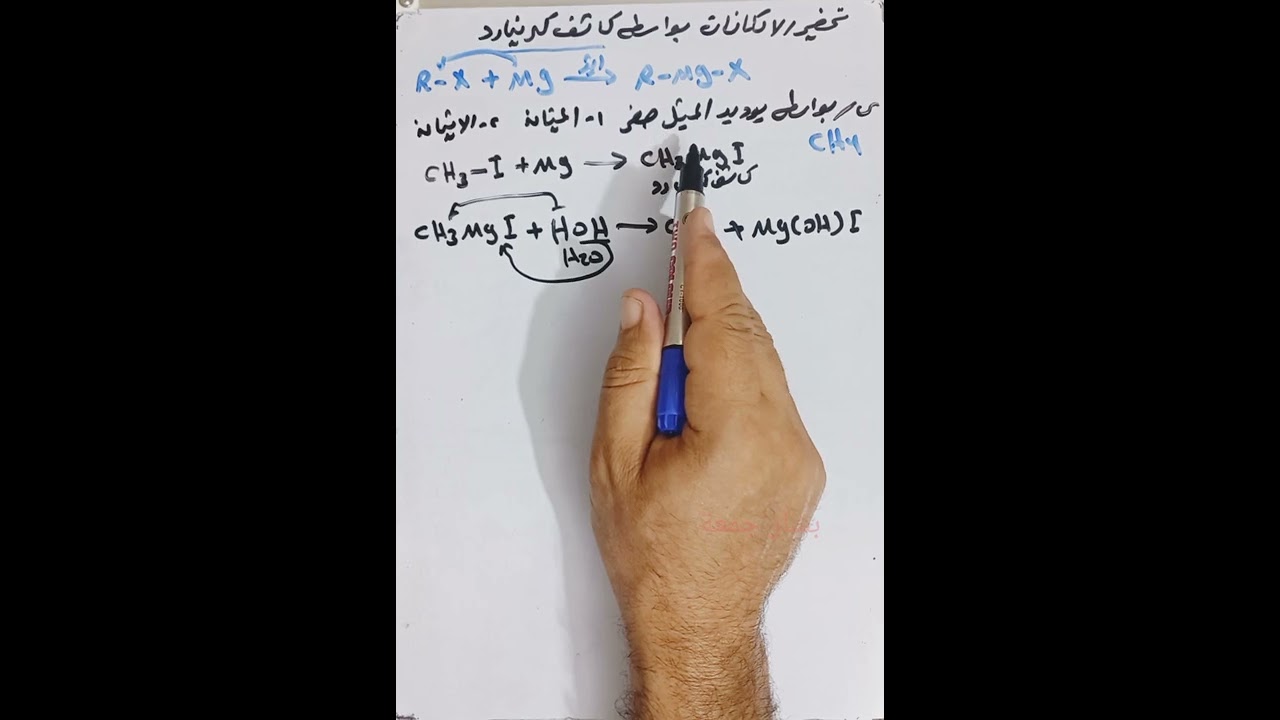 تحضير الالكانات بواسطة كاشف كرنيارد
R-X + Mg ⟶ R-Mg-X
س/ بواسطة يوديد المثيل حضر ١- الميثان ٢- الايثان
CH4
CH3-I + Mg ⟶ CH3MgI
كاشف
CH3MgI + HOH ⟶ + Mg(OH)I
H2O